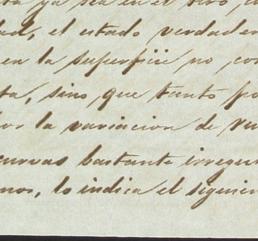 ya sea en el
el estado verdader
en la superficie no con
ta, sino que tanto po
la variacion de
curvas bastante irregu
nos, lo indica el siguien